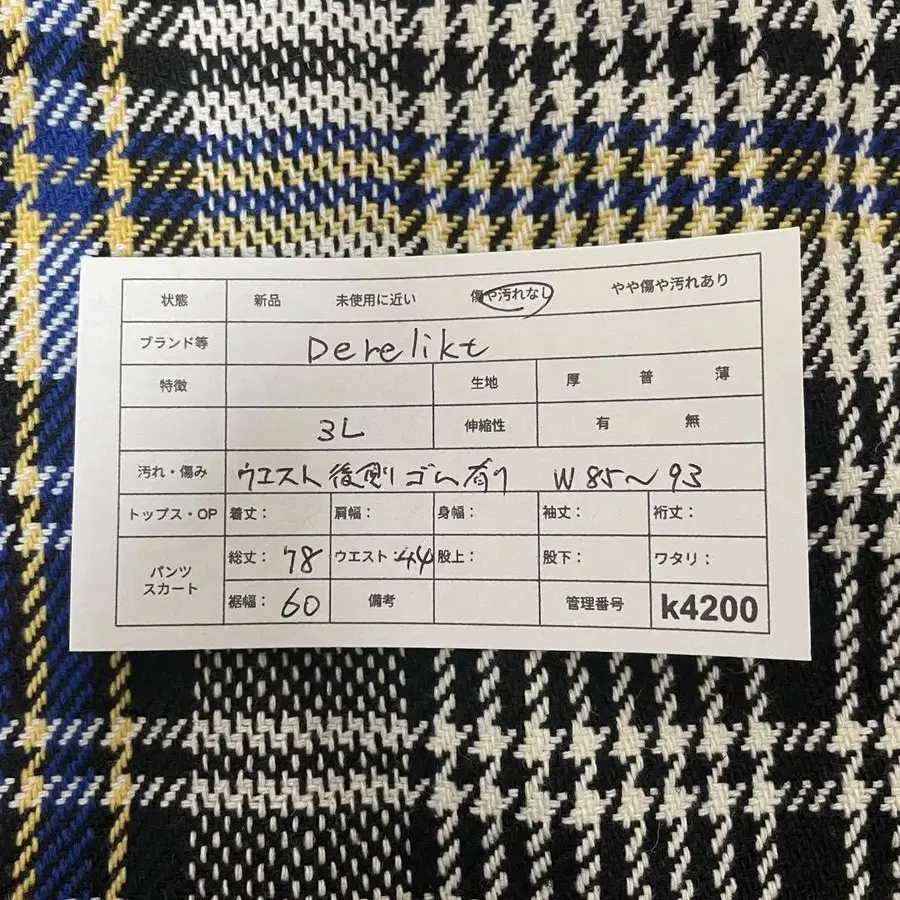 状態 新品 未使用に近い 傷や汚れなし やや傷や汚れあり
ブランド等 Derelikt
特徴 生地 厚 普 薄
3L 伸縮性 有 無
汚れ・傷み ウエスト後側ゴム有り W85〜93
トップス・OP 着丈： 肩幅： 身幅： 袖丈： 裄丈：
パンツ スカート 総丈：78 ウエスト：44 股上： 股下： ワタリ：
裾幅：60 備考 管理番号 k4200